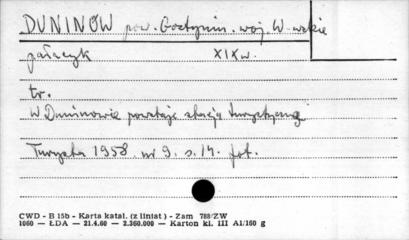 DUNINÓW pow. Gostynin. woj. W-wskie
pałacyk XIX w.
tr.
W Duninowie powstaje stacja turystyczna
Turysta 1958. nr 9. s. 14. fot.
CWD - B 15b - Karta katal. (z liniat) - Zam 788/ZW
1060 — ŁDA — 21.4.60 — 2.360.000 — Karton kl. III A1/160 g